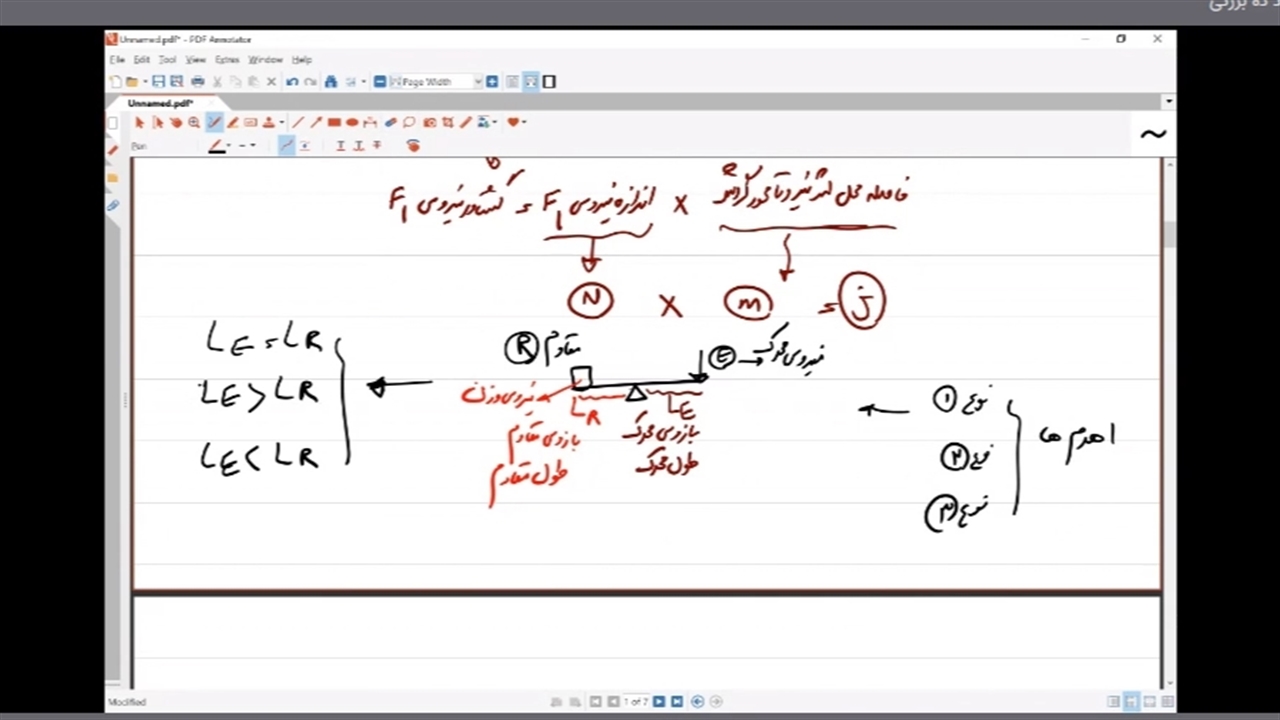 Unnamed.pdf* - PDF Annotator
File Edit Tool View Extras Window Help
Page Width
Unnamed.pdf*
Pen
فاصله محل اثر نیرو تا محور گردش × اندازه نیروی F₁ = گشتاور نیروی F₁
N × m = j
L_E = L_R
L_E > L_R
L_E < L_R
R مقاوم
E → نیروی محرک
نیروی وزن
L_R
L_E
بازوی مقاوم
بازوی محرک
طول مقاوم
طول محرک
اهرم ها
نوع ①
نوع ②
نوع ③
Modified
1 of 7